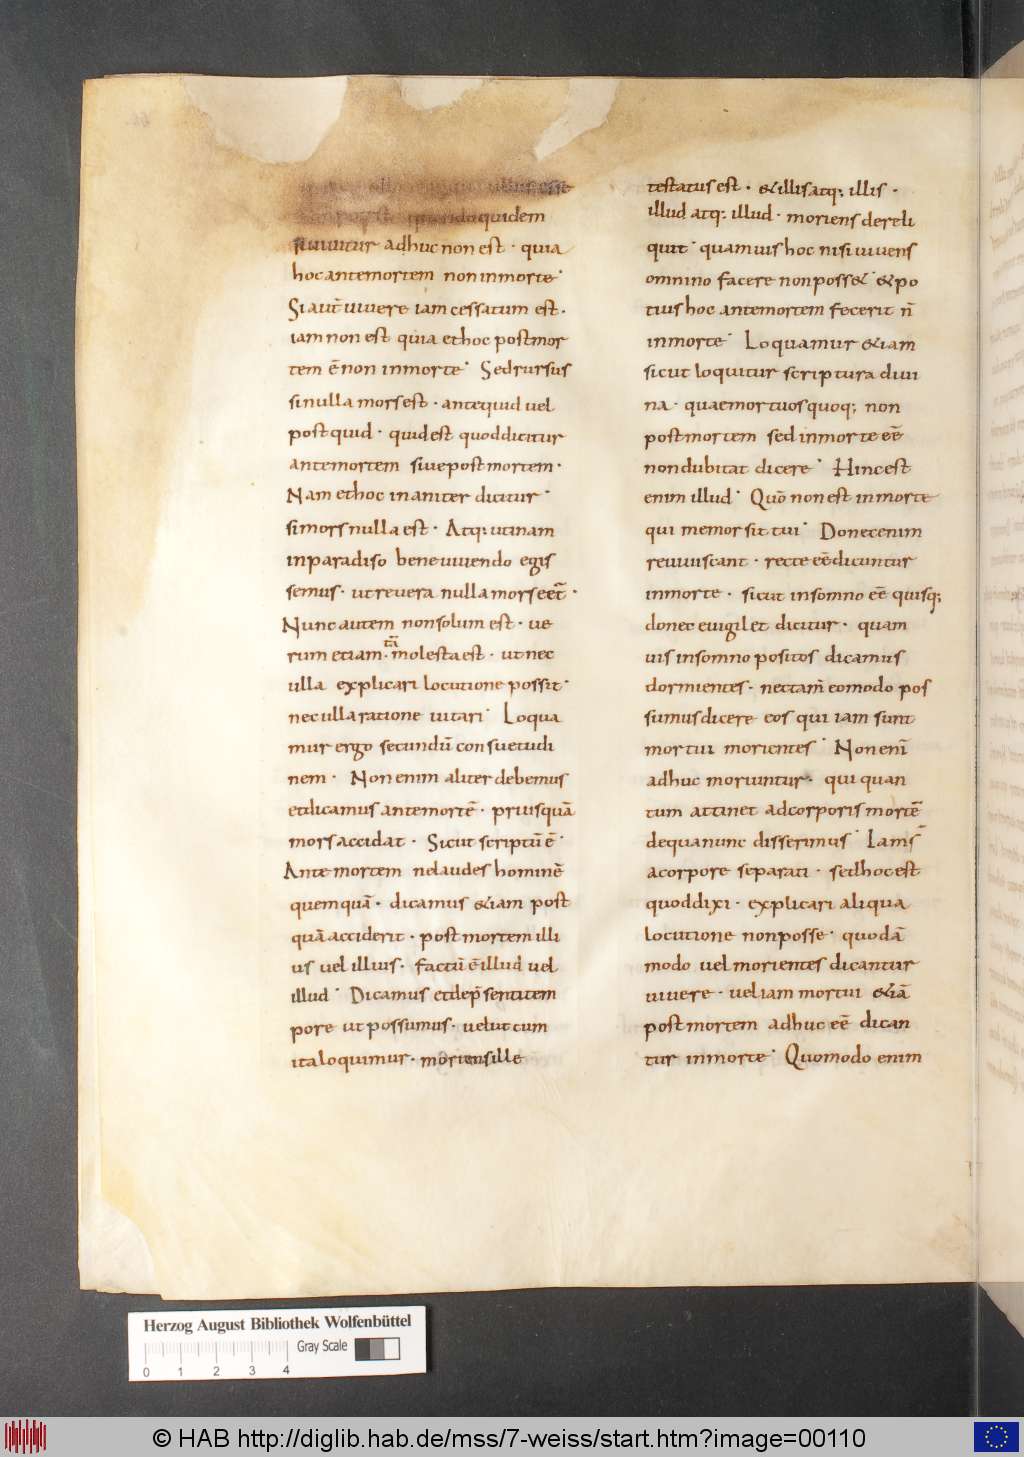 illius esse
quidem
si uiuitur adhuc non est · quia
hoc ante mortem non in morte ·
Si aut̄ uiuere iam cessatum est ·
iam non est quia et hoc post mor
tem ē non in morte · Sed rursus
si nulla mors est · ante quid uel
post quid · quid est quod dicitur
ante mortem siue post mortem ·
Nam et hoc inaniter dicitur ·
si mors nulla est · Atq; utinam
in paradiso bene uiuendo egis
semus · ut reuera nulla mors eēt ·
Nunc autem non solum est · ue
rum etiam · tā molesta est · ut nec
ulla explicari locutione possit ·
nec ulla ratione uitari · Loqua
mur ergo secundū consuetudi
nem · Non enim aliter debemus
et dicamus ante mortē · priusquā
mors accidat · Sicut scriptū ē ·
Ante mortem ne laudes hominē
quemquā · dicamus &iam post
quā acciderit · post mortem illi
us uel illius · factū ē illud uel
illud · Dicamus et de p̄senti tem
pore ut possumus · uelut cum
ita loquimur · moriens ille
testatus est · & illis atq; illis ·
illud atq; illud · moriens dereli
quit · quamuis hoc nisi uiuens
omnino facere non poss& · & po
tius hoc ante mortem fecerit n̄
in morte · Loquamur &iam
sicut loquitur scriptura diui
na · quae mortuos quoq; non
post mortem sed in morte eē
non dubitat dicere · Hinc est
enim illud · Quō non est in morte
qui memor sit tui · Donec enim
reuiuiscant · recte eē dicuntur
in morte · sicut in somno eē quisq;
donec euigilet dicitur · quam
uis in somno positos dicamus
dormientes · nec tam̄ eo modo pos
sumus dicere eos qui iam sunt
mortui morientes · Non eni̅
adhuc moriuntur · qui quan
tum attinet ad corporis mortē
de qua nunc disserimus · Iam s̄
a corpore separati · sed hoc est
quod dixi · explicari aliqua
locutione non posse · quodā
modo uel morientes dicantur
uiuere · uel iam mortui &iā
post mortem adhuc eē dican
tur in morte · Quomodo enim
Herzog August Bibliothek Wolfenbüttel
Gray Scale
0 1 2 3 4
© HAB http://diglib.hab.de/mss/7-weiss/start.htm?image=00110